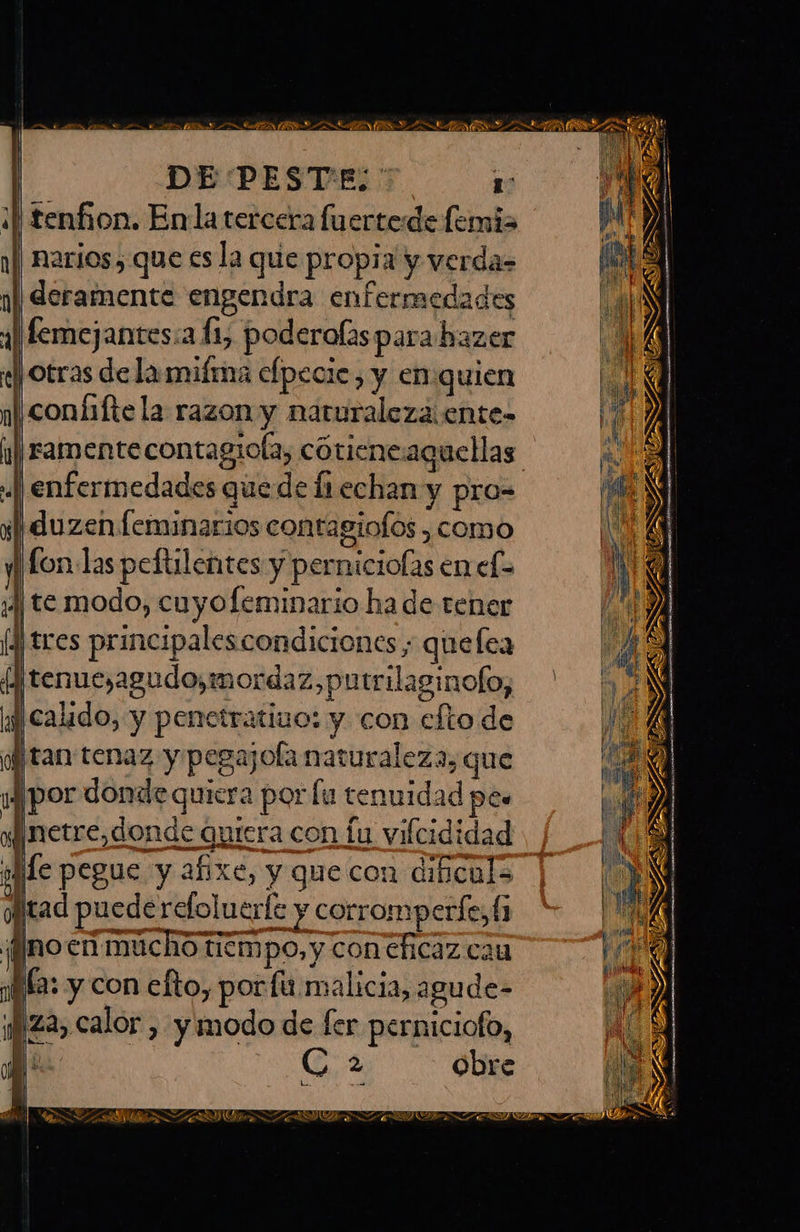 DE PESTE.
tenſion. En la tercera ſuerte de ſemi-
narios, que es la que propia y verda-
deramente engendra enfermedades
ſemejantes a ſi, poderoſas para hazer
otras de la miſma eſpecie, y en quien
conſiſte la razon y naturaleza ente-
ramente contagioſa, cõtiene aquellas
enfermedades que de ſi echan y pro-
duzen ſeminarios contagioſos, como
ſon las peſtilentes y pernicioſas en eſ-
te modo, cuyo ſeminario ha de tener
tres principales condiciones; que ſea
tenue, agudo, mordaz, putrilaginoſo,
calido, y penetratiuo: y con eſto de
tan tenaz y pegajoſa naturaleza, que
por donde quiera por ſu tenuidad pe-
netre, donde quiera con ſu viſcididad
ſe pegue y afixe, y que con dificul-
tad puede reſoluerſe y corromperſe, ſi
no en mucho tiempo, y con eficaz cau
ſa: y con eſto, por ſu malicia, agude-
za, calor, y modo de ſer pernicioſo,
C 2 obre